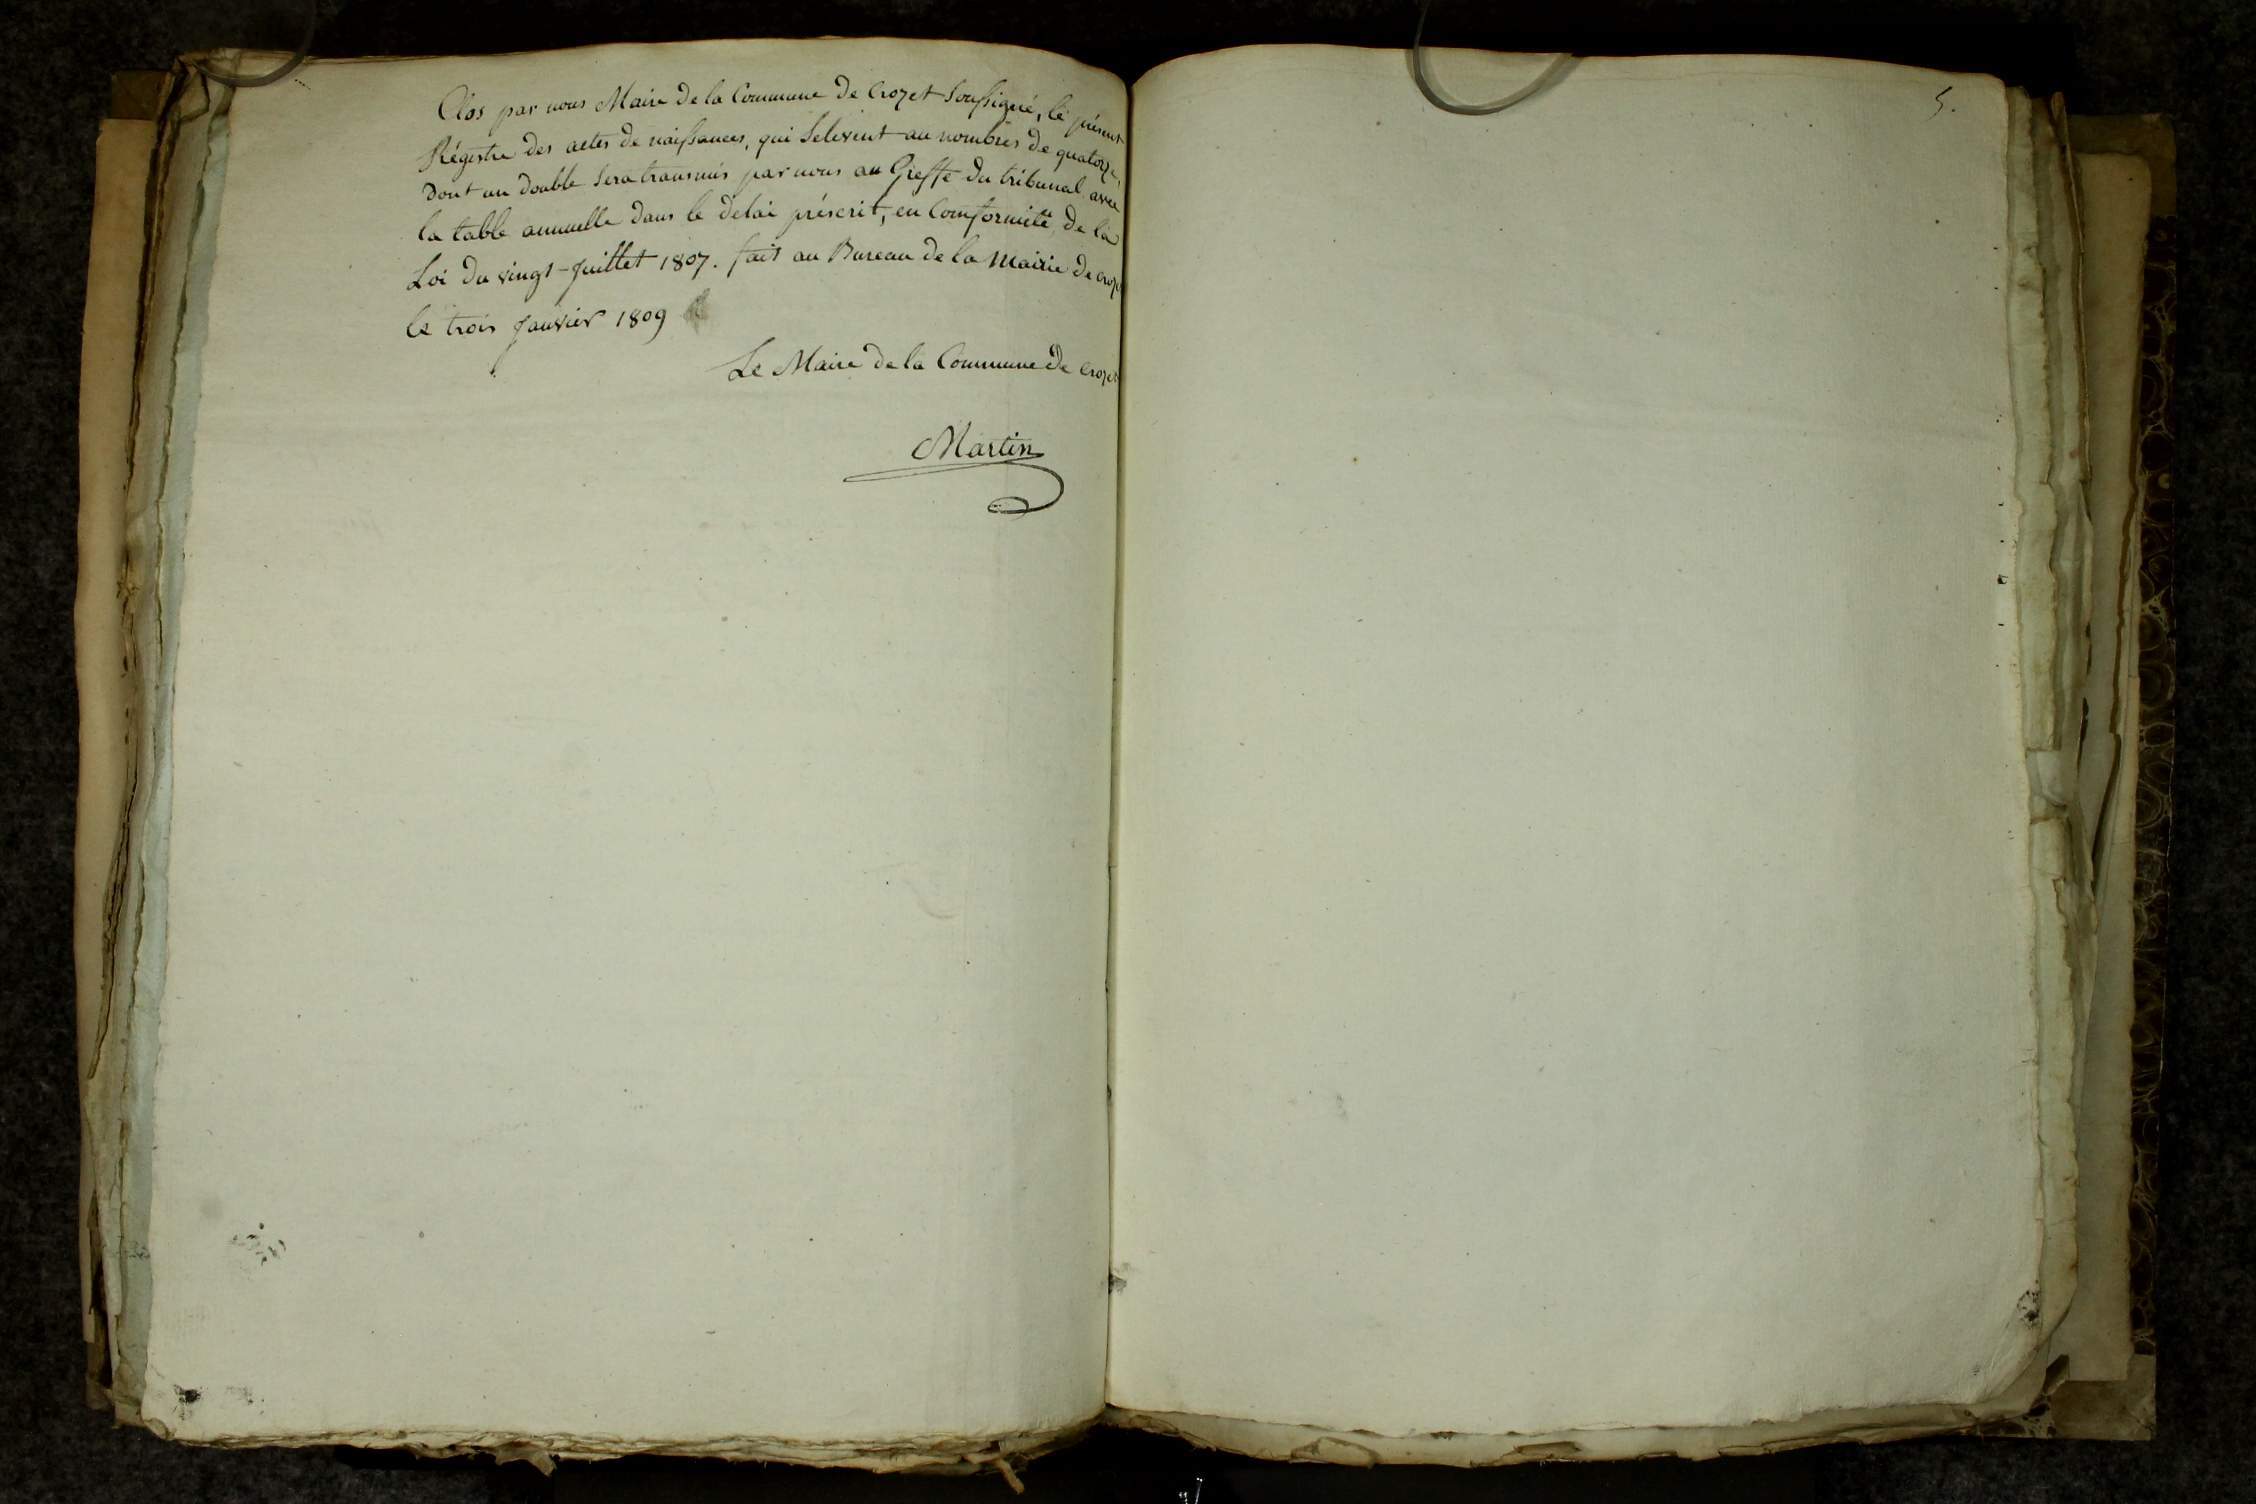 Clos par nous Maire de la Commune de Crozet Soussigné, le présent
Régistre des actes de naissances, qui Selevent au nombres de quatorze,
Dont un double Sera transmis par nous au Greffe du tribunal avec
la table annuelle dans le delai préscrit, en Comformité, de la
Loi du vingt-Juillet 1807. fait au Bureau de la Mairie de Crozet
le trois Janvier 1809
Le Maire de la Commune de Crozet
Martin
5.